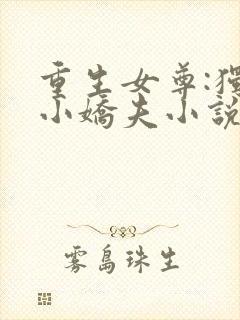 重生女尊:獨
小嬌夫小說
霧島珠生